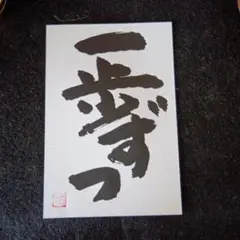 一歩ずつ